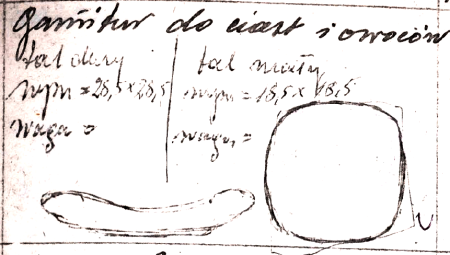 garnitur do ciast i owoców
tal duży
wym = 28,5 x 28,5
waga =
tal mały
wym = 18,5 x 18,5
waga =